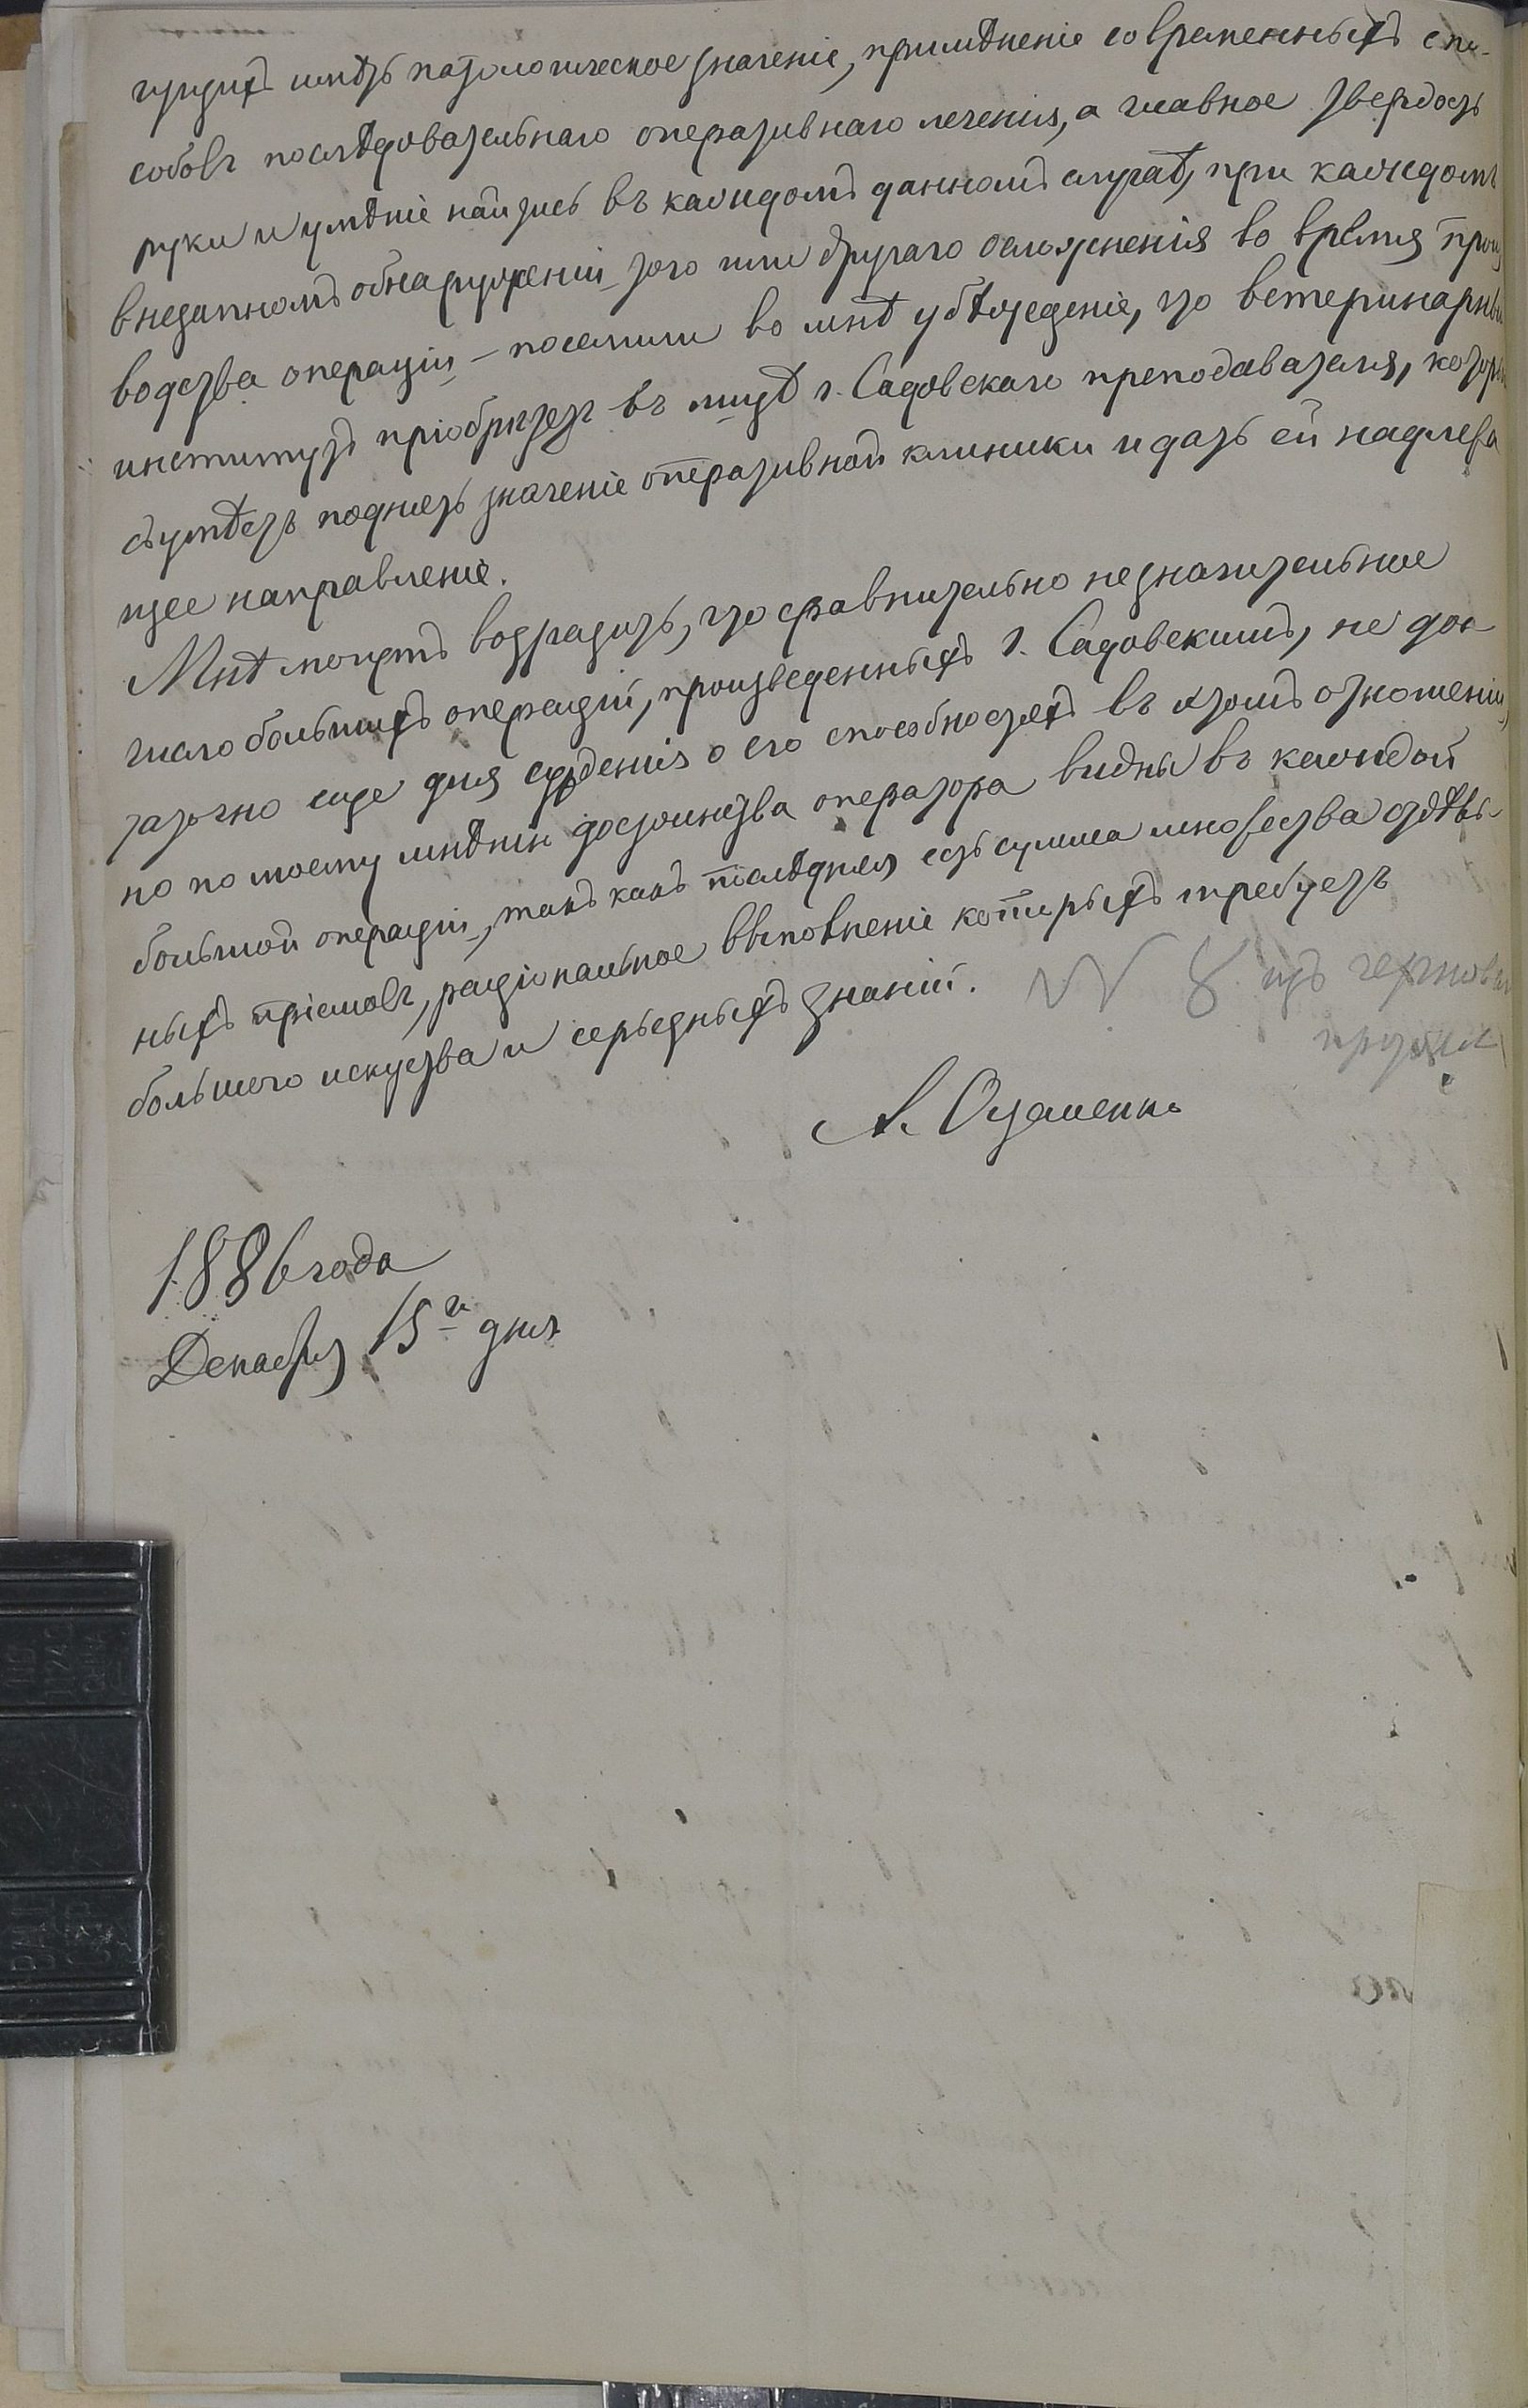 гущихъ имѣть патологическое значеніе, примѣненіе современныхъ спо-
собовъ послѣдовательнаго оперативнаго леченія, а главное твердость
руки и умѣніе найтись въ каждомъ данномъ случаѣ, при каждомъ
внезапномъ обнаруженіи того или другаго осложненія во время произ
водства операціи – поселили во мнѣ убѣжденіе, что ветеринарный
институтъ пріобрѣтетъ въ лицѣ г. Садовскаго преподавателя, который
съумѣетъ поднять значеніе оперативной клиники и дать ей надлежа
щее направленіе.
Мнѣ могутъ возразить, что сравнительно незначительное
число большихъ операцій, произведенныхъ г. Садовскимъ, не дос
таточно еще для сужденія о его способностяхъ въ этомъ отношеніи,
но по моему мнѣнію достоинства оператора видны въ каждой
большой операціи, такъ какъ послѣдняя есть сумма множества отдѣль
ныхъ пріемовъ, раціональное выполненіе которыхъ требуетъ
большого искуства и серьезныхъ знаній.
№ 8 изъ
А. Остапенко
1886 года
Декабря 15го дня